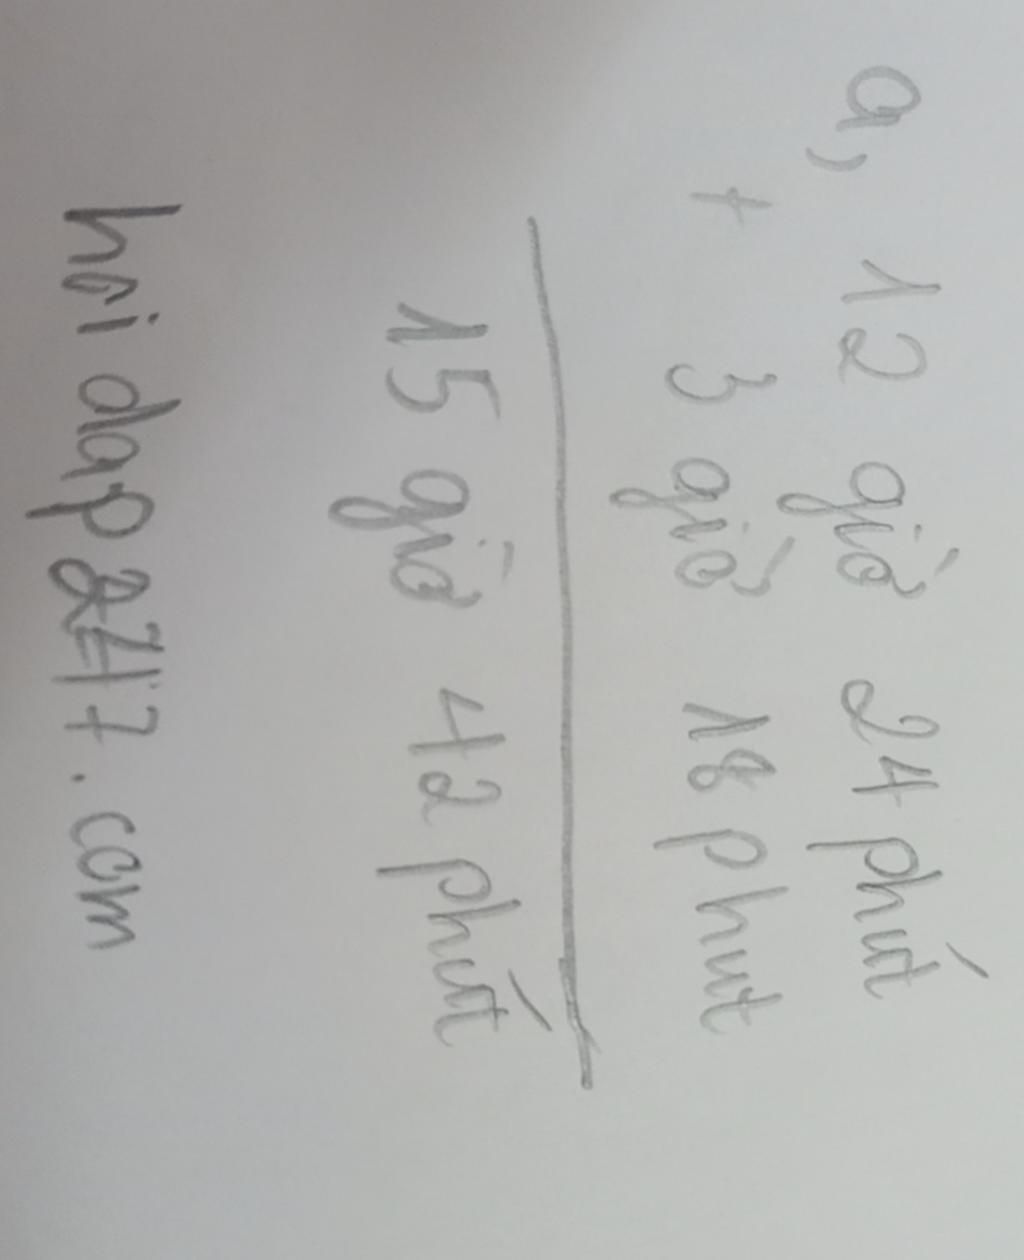 a, 12 giờ 24 phút
+ 3 giờ 18 phut
15 giờ 42 phút
hoidap247.com